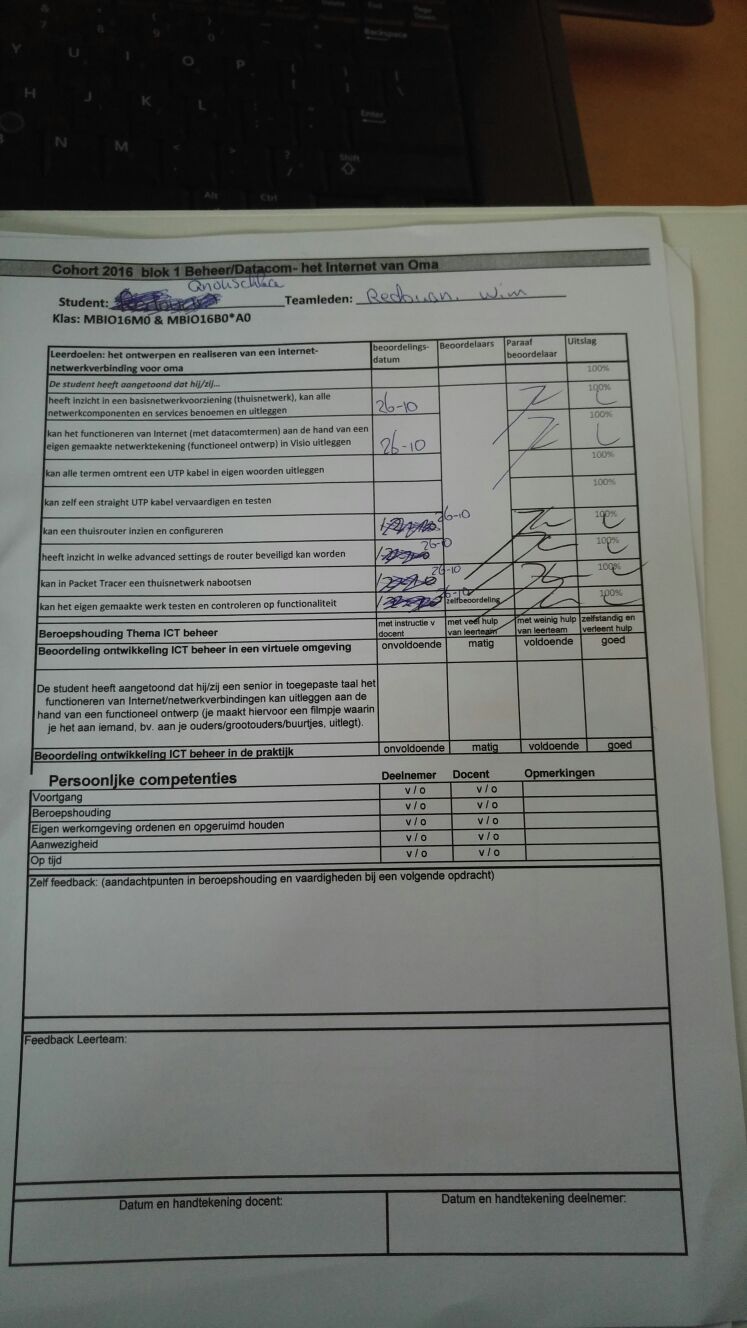 Backspace
Enter
Shift
Alt
Ctrl
Y U I O P
H J K L
N M
Cohort 2016 blok 1 Beheer/Datacom- het Internet van Oma
Student: Anouschka Teamleden: Redouan. Wim
Klas: MBIO16M0 & MBIO16B0*A0
Leerdoelen: het ontwerpen en realiseren van een internet-netwerkverbinding voor oma
beoordelings-datum
Beoordelaars
Paraaf beoordelaar
Uitslag
De student heeft aangetoond dat hij/zij... 100%
heeft inzicht in een basisnetwerkvoorziening (thuisnetwerk), kan alle
netwerkcomponenten en services benoemen en uitleggen 26-10 100%
kan het functioneren van Internet (met datacomtermen) aan de hand van een
eigen gemaakte netwerktekening (functioneel ontwerp) in Visio uitleggen 26-10 100%
kan alle termen omtrent een UTP kabel in eigen woorden uitleggen 100%
kan zelf een straight UTP kabel vervaardigen en testen 100%
kan een thuisrouter inzien en configureren 26-10 100%
heeft inzicht in welke advanced settings de router beveiligd kan worden 26-10 100%
kan in Packet Tracer een thuisnetwerk nabootsen 26-10 100%
kan het eigen gemaakte werk testen en controleren op functionaliteit 26-10 zelfbeoordeling 100%
Beroepshouding Thema ICT beheer
met instructie v docent
met veel hulp van leerteam
met weinig hulp van leerteam
zelfstandig en verleent hulp
Beoordeling ontwikkeling ICT beheer in een virtuele omgeving onvoldoende matig voldoende goed
De student heeft aangetoond dat hij/zij een senior in toegepaste taal het
functioneren van Internet/netwerkverbindingen kan uitleggen aan de
hand van een functioneel ontwerp (je maakt hiervoor een filmpje waarin
je het aan iemand, bv. aan je ouders/grootouders/buurtjes, uitlegt).
Beoordeling ontwikkeling ICT beheer in de praktijk onvoldoende matig voldoende goed
Persoonljke competenties Deelnemer Docent Opmerkingen
Voortgang v / o v / o
Beroepshouding v / o v / o
Eigen werkomgeving ordenen en opgeruimd houden v / o v / o
Aanwezigheid v / o v / o
Op tijd v / o v / o
Zelf feedback: (aandachtpunten in beroepshouding en vaardigheden bij een volgende opdracht)
Feedback Leerteam:
Datum en handtekening docent: Datum en handtekening deelnemer: